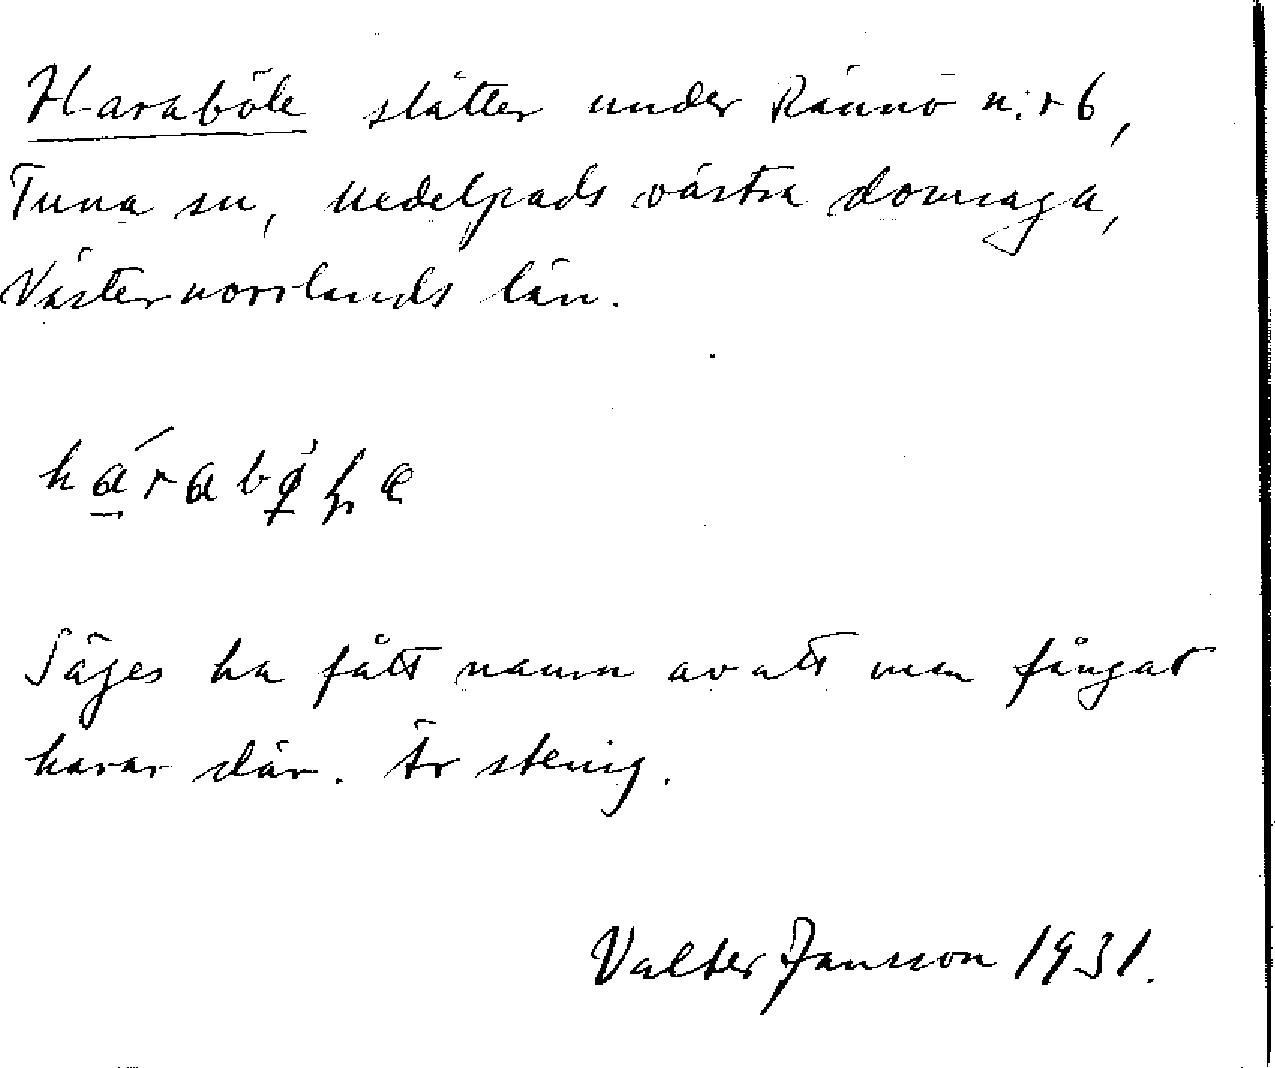 Haraböle slåtter under Rännö n:r 6,
Tuna sn, Medelpads västra domsaga,
Västernorrlands län.
Säges ha fått namn av att man fångat
harar där. Är stenig.
Valter Jansson 1931.